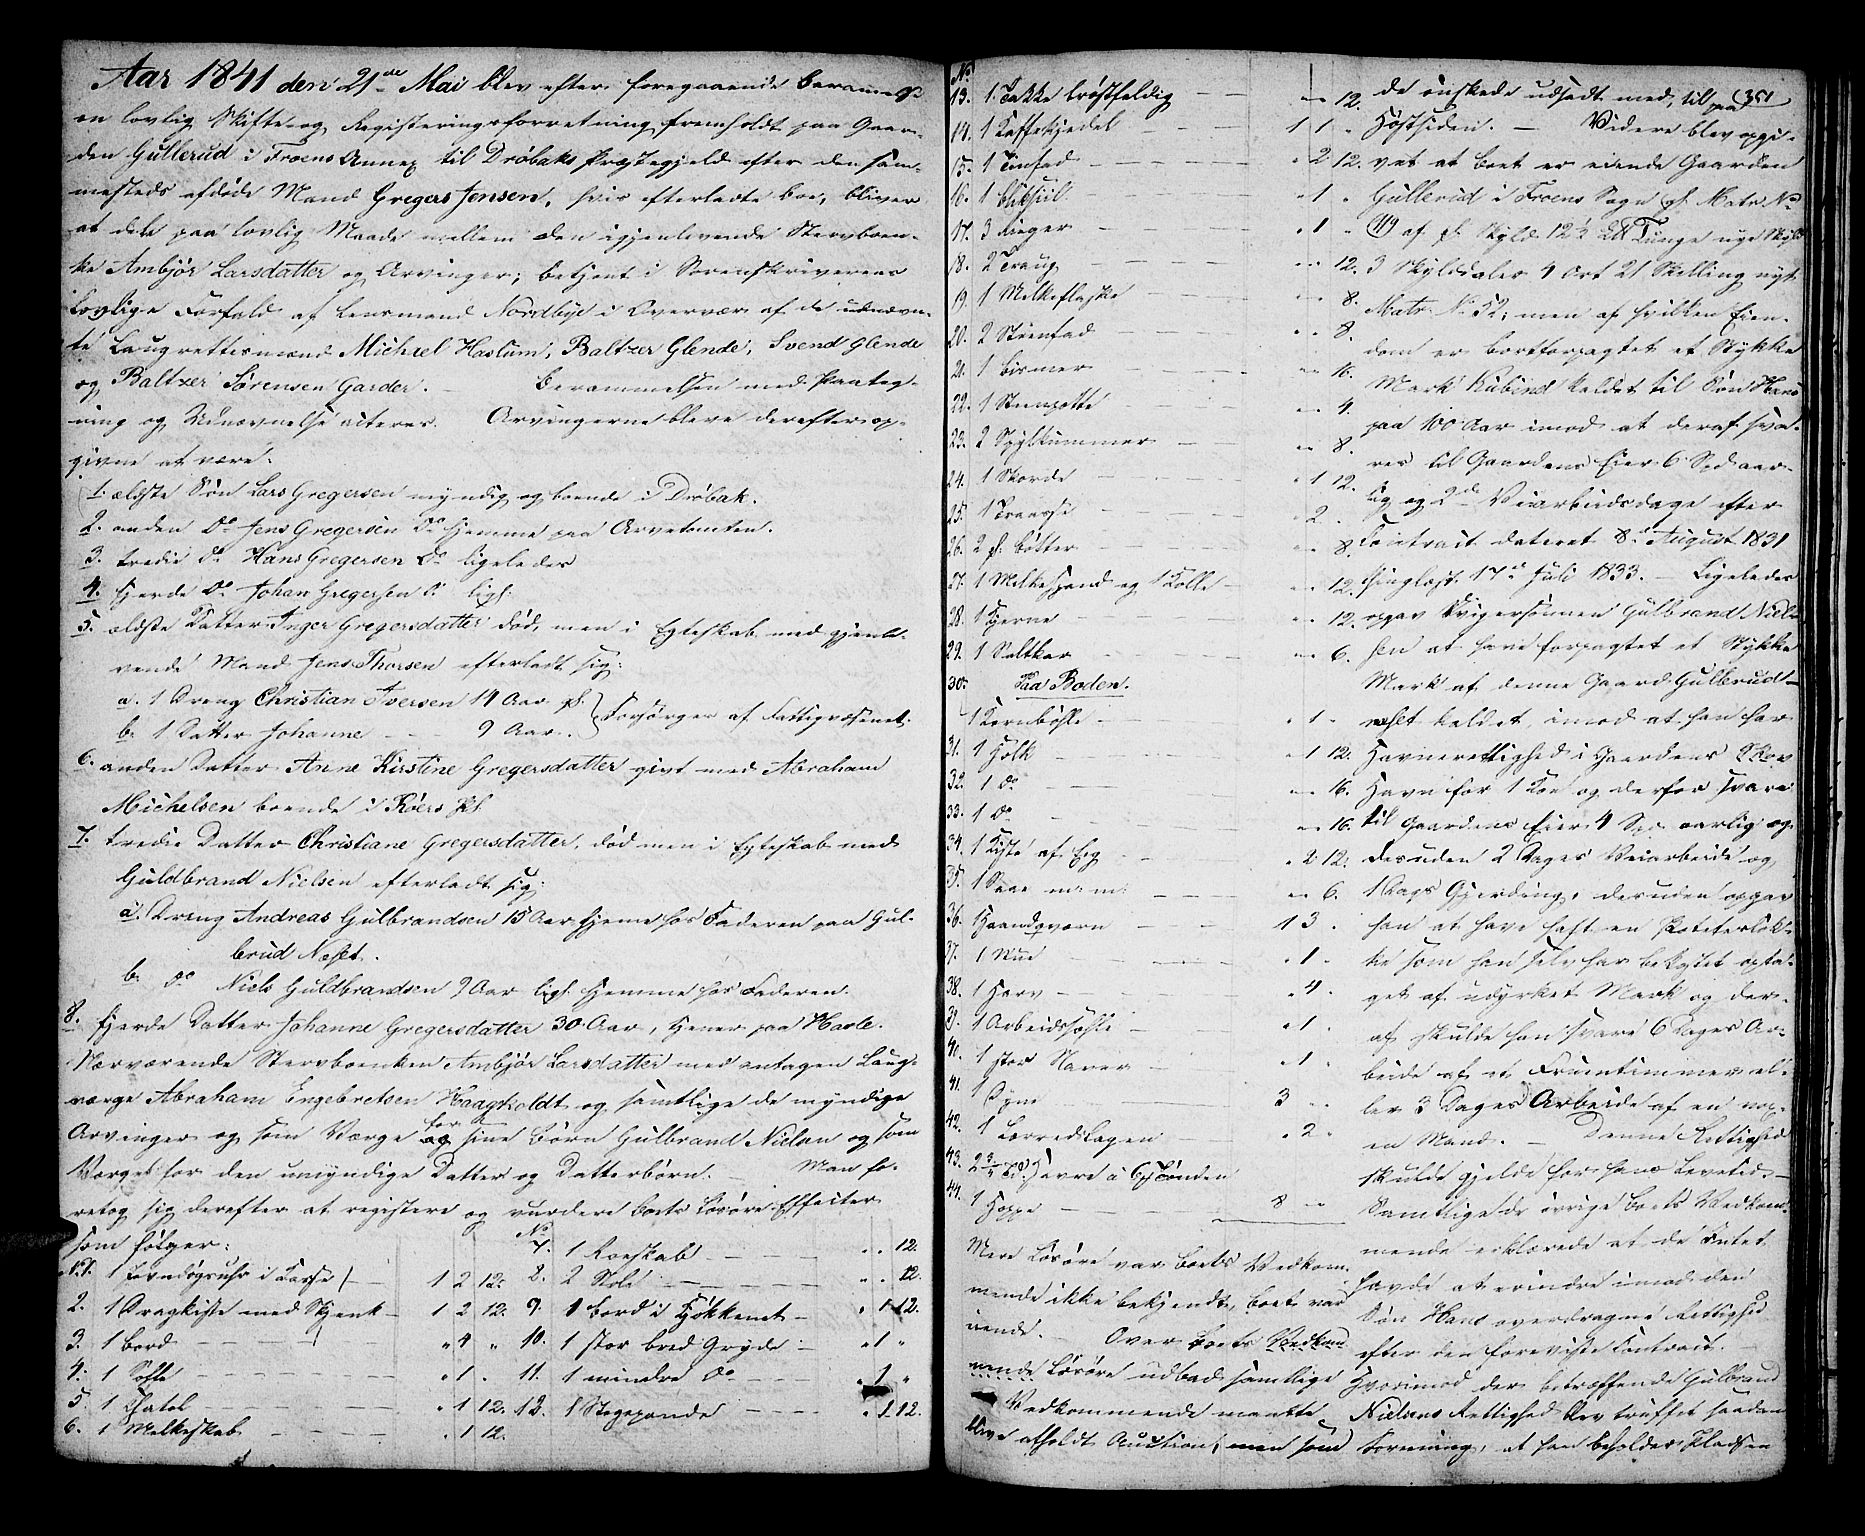 Aar 1841 den 21de Mai blev efter foregaaende Berammelse
en lovlig Skifte- og Registeringsforretning fremholdt paa Gaar-
den Gullerud i Froens Annex til Dröbaks Præstegjeld efter den sam-
mesteds afdöde Mand Gregers Jensen, hvis efterladte Boe, bliver
at dele paa lovlig Maade mellem den igjenlevende Stervboen-
ke Ambjör Larsdatter og Arvinger; betjent i Sorenskriverens
Lovlige Forfald af Lensmand Nordbye i Overvær af de udnævn-
te Laugrettesmænd Michael Haslum, Baltzer Glende, Svend Glende
og Baltzer Sörensen Garder. — Berammelsen med Paateg-
ning og Udnævnelse citeres. Arvingerne bleve derefter op-
givne at være:
1. ældste Sön Lars Gregersen myndig og boende i Dröbak.
2. anden Do Jens Gregersen Do hjemme paa Arvetomten.
3. tredie Do Hans Gregersen Do ligeledes
4. fjerde Do Johan Gregersen Do ligs.
5. ældste Datter Inger Gregersdatter död, men i Egteskab med gjenle-
vende Mand Jens Thorsen efterladt sig:
a. 1 Dreng Christian Iversen 14 Aar gl. } Forsörges af Fattigvæsenet.
b. 1 Datter Johanne — — 9 Aar.
6. anden Datter Anne Kirstine Gregersdatter givt med Abraham
Michelsen boende i
7. tredie Datter Christiane Gregersdatter, död men i Egteskab med
Guldbrand Nielsen efterladt sig:
a. Dreng Andreas Gulbrandsen 15 Aar hjeme hos Faderen paa Gul-
brud Neset.
b. do Niels Guldbrandsen 9 Aar ligs. hjemme hos Faderen.
8. fjerde Datter Johanne Gregersdatter 30 Aar, tjener paa Havle.
Nærværende Stervboenken Ambjör Larsdatter med antagen Laug-
værge Abraham Engebretsen Haagkoldt og samtlige de myndige
Arvinger og som Værge for sine Börn Gulbrand Nielsen og som
Værge for den umyndige Datter og Datterbörn. — Man fo-
retog sig derefter at registere og vurdere Boets Lösöre Effecter
som fölger:
No 1. 1 Tovndögsuhr i Casse — 1 2 12.
2. 1 Dragkiste med Skjenk — 1 2 12.
3. 1 Bord — — " 4 "
4. 1 — — " 1 .
5. 1 — — " 1 12.
6. 1 Melkeskab — " 1 12.
No
7. 1 Roeskab — — " . 12.
8. 2 Stole — — " " 12.
9. 1 Bord i Kjökkenet — " 1 12.
10. 1 stor bred Gryde — " 1 "
11. 1 mindre Do — — " 1 "
12. 1 Stegepande — — " 1 12.
No
13. 1 Takke bröstfeldig — — " " 12.
14. 1 Kaffekjedel — — 1 1 "
15. 1 Tinfad — — " 2 12.
16. 1 — — " 1 "
17. 3 — — " 1 "
18. 2 Traug — — " " 12.
19. 1 Melkeflaske — — " " 8.
20. 2 Steenfad — — " " 8.
21. 1 Bismer — — " " 16.
22. 1 Steenpotte — — " " 4.
23. 2 Spylkummer — — " " 8.
24. 1 — — " 1 12.
25. 1 — — " 2 .
26. 2 — Bötter — — " " 8.
27. 1 Melkespand og 1 Kolle — " " 12.
28. 1 Kjerne — — " " 12.
29. 1 Saltkar — — " " 6.
30. Paa Boden.
1 Kornbölle — — " 1 "
31. 1 Holk — — " 1 12.
32. 1 do — — " " 16.
33. 1 Do — — " " 16.
34. 1 Kiste af Eeg — — " 2 12.
35. 1 Saae m: m: — — " " 6.
36. 1 Haandqværn — — 1 3 .
37. 1 — — " 1 "
38. 1 Harv — — " 4 "
39. 1 Arbeids — — " 1 "
40. 1 stor Naver — — " 1 "
41. 1 Dyne — — 3 " "
42. 1 Lærredslagen — " 2 "
43. 2 3/4 Td. Havre a 6 Tönden
44. 1 Hoppe — — 8 " "
Mere Lösöre var Boets Vedkom-
mende ikke bekjendt, Boet var
eiende. — Over Boets Vedkom-
mende Lösöre udbad samtlige
Vedkommende maatte
blive afholdt Auction; men som
351
de önskede udsadt med, til paa
Höstsiden. — Videre blev opgi-
vet at Boet er eiende Gaarden
Gullerud i Froens Sogn gl. Matr. No
49 af gl. Skyld 12½ L℔ Tunge nye Skyld
3 Skylddaler 4 Ort 21 Skelling nyt
Matr. No 52; men af hvilken Eien-
dom er bortforpagtet et Stykke
Mark Kubind kaldet til Sön Hans
paa 100 Aar imod at deraf sva-
res til Gaardens Eier 6 Spd aar-
lig og 2de Veiarbeidsdage efter
Contract dateret 8de August 1831
tinglæst 17de Juli 1833. — Ligeledes
opgav Svigersönnen Gulbrand Niel-
sen at have forpagtet et Stykke
Mark af denne Gaard Gulbrudt-
neset kaldet, imod at han har
Havnerettighed i Gaardens Skov
Havn for 1 Koe og derfor svare
til Gaardens Eier 4 Spd aarlig og
desuden 2 Dages Veiarbeide og
1 Dags Gjerding; desuden opgav
han at have havt en Poteterlök-
ke som han selv har bekostet opta-
get af udyrket Mark og der-
af skulde han svare 6 Dages Ar-
beide af et Fruentimmer el-
ler 3 Dages Arbeide af en vox-
en Mand. — Denne Rettighed
skulde gjelde for hans Levetid. —
Samtlige de övrige Boets Vedkom-
mende erklærede at de Intet
havde at erindre imod den
Sön Hans overdragne Rettighed
efter den foreviste Contract. —
Hvorimod der betræffende Gulbrand
Nielsens Rettighed blev truffet saadan
Forening, at han beholder Pladsen